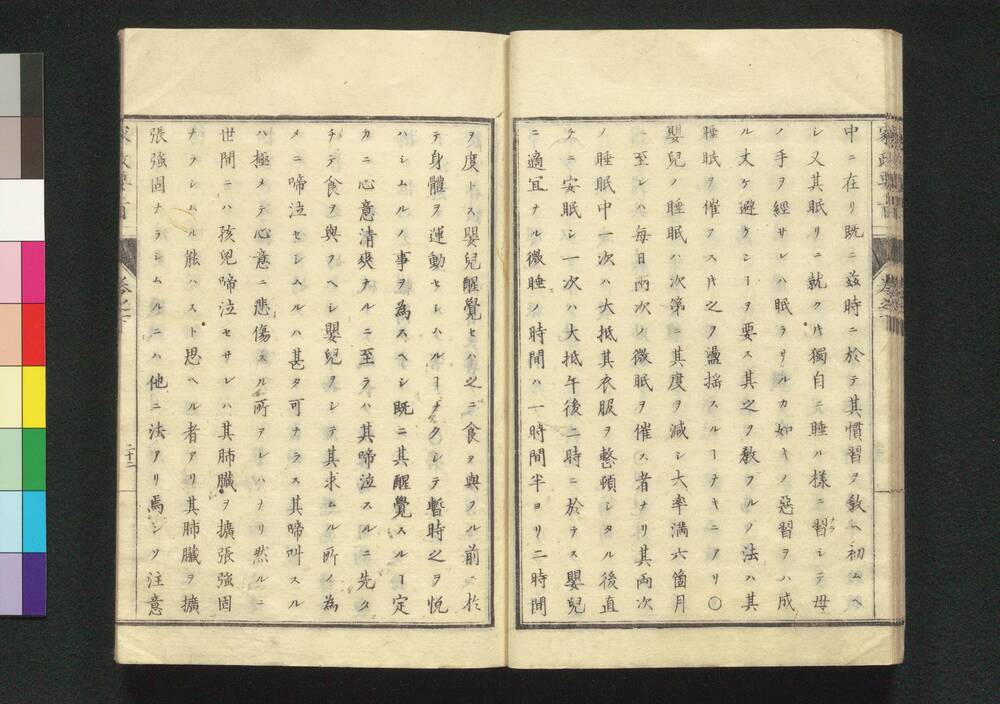 中ニ在リ既ニ玆時ニ於テ其慣習ヲ敎ヘ初ムヘ
シ又其眠リニ就ク𪜈獨自ニ睡ル樣ニ習シテ母
ナラ
ノ手ヲ經サレハ眠ラサルカ如キノ惡習ヲハ成
ル丈ケ避ケシヿヲ要ス其之ヲ敎フルノ法ハ其
睡眠ヲ催フス𪜈之ヲ盪搖スルヿナキニアリ〇
嬰兒ノ睡眠ハ次第ニ其度ヲ減シ大率滿六箇月
ニ至レハ每日兩次ノ微眠ヲ催ス者ナリ其兩次
ノ睡眠中一次ハ大抵其衣服ヲ整頓シタル後直
チニ安眠シ一次ハ大抵午後二時ニ於テス嬰兒
ニ適宜ナル微睡ノ時間ハ一時間半ヨリ二時間
ヲ度トス嬰兒醒覺セハ之ニ食ヲ與フル前ニ於
テ身體ヲ運動セシハルヿナクシテ暫時之ヲ悅
ハシムルノ事ヲ為スヘシ既ニ其醒覺スルヿ定
カニ心意清爽ナルニ至ラハ其啼泣スルニ先タ
チテ食ヲ與フヘシ嬰兒ヲシテ其求ムル所ノ為
メニ啼泣セシムルハ甚タ可ナラス其啼叫スル
ハ極メテ心意ニ悲傷スル所アレハナリ然ルニ
世間ニハ孩兒啼泣セサレハ其肺臟ヲ擴張強固
ナラシムル能ハスト思ヘル者アリ其肺臟ヲ擴
張強固ナラシムルニハ他ニ法アリ焉ンソ注意
卷之下
二十二